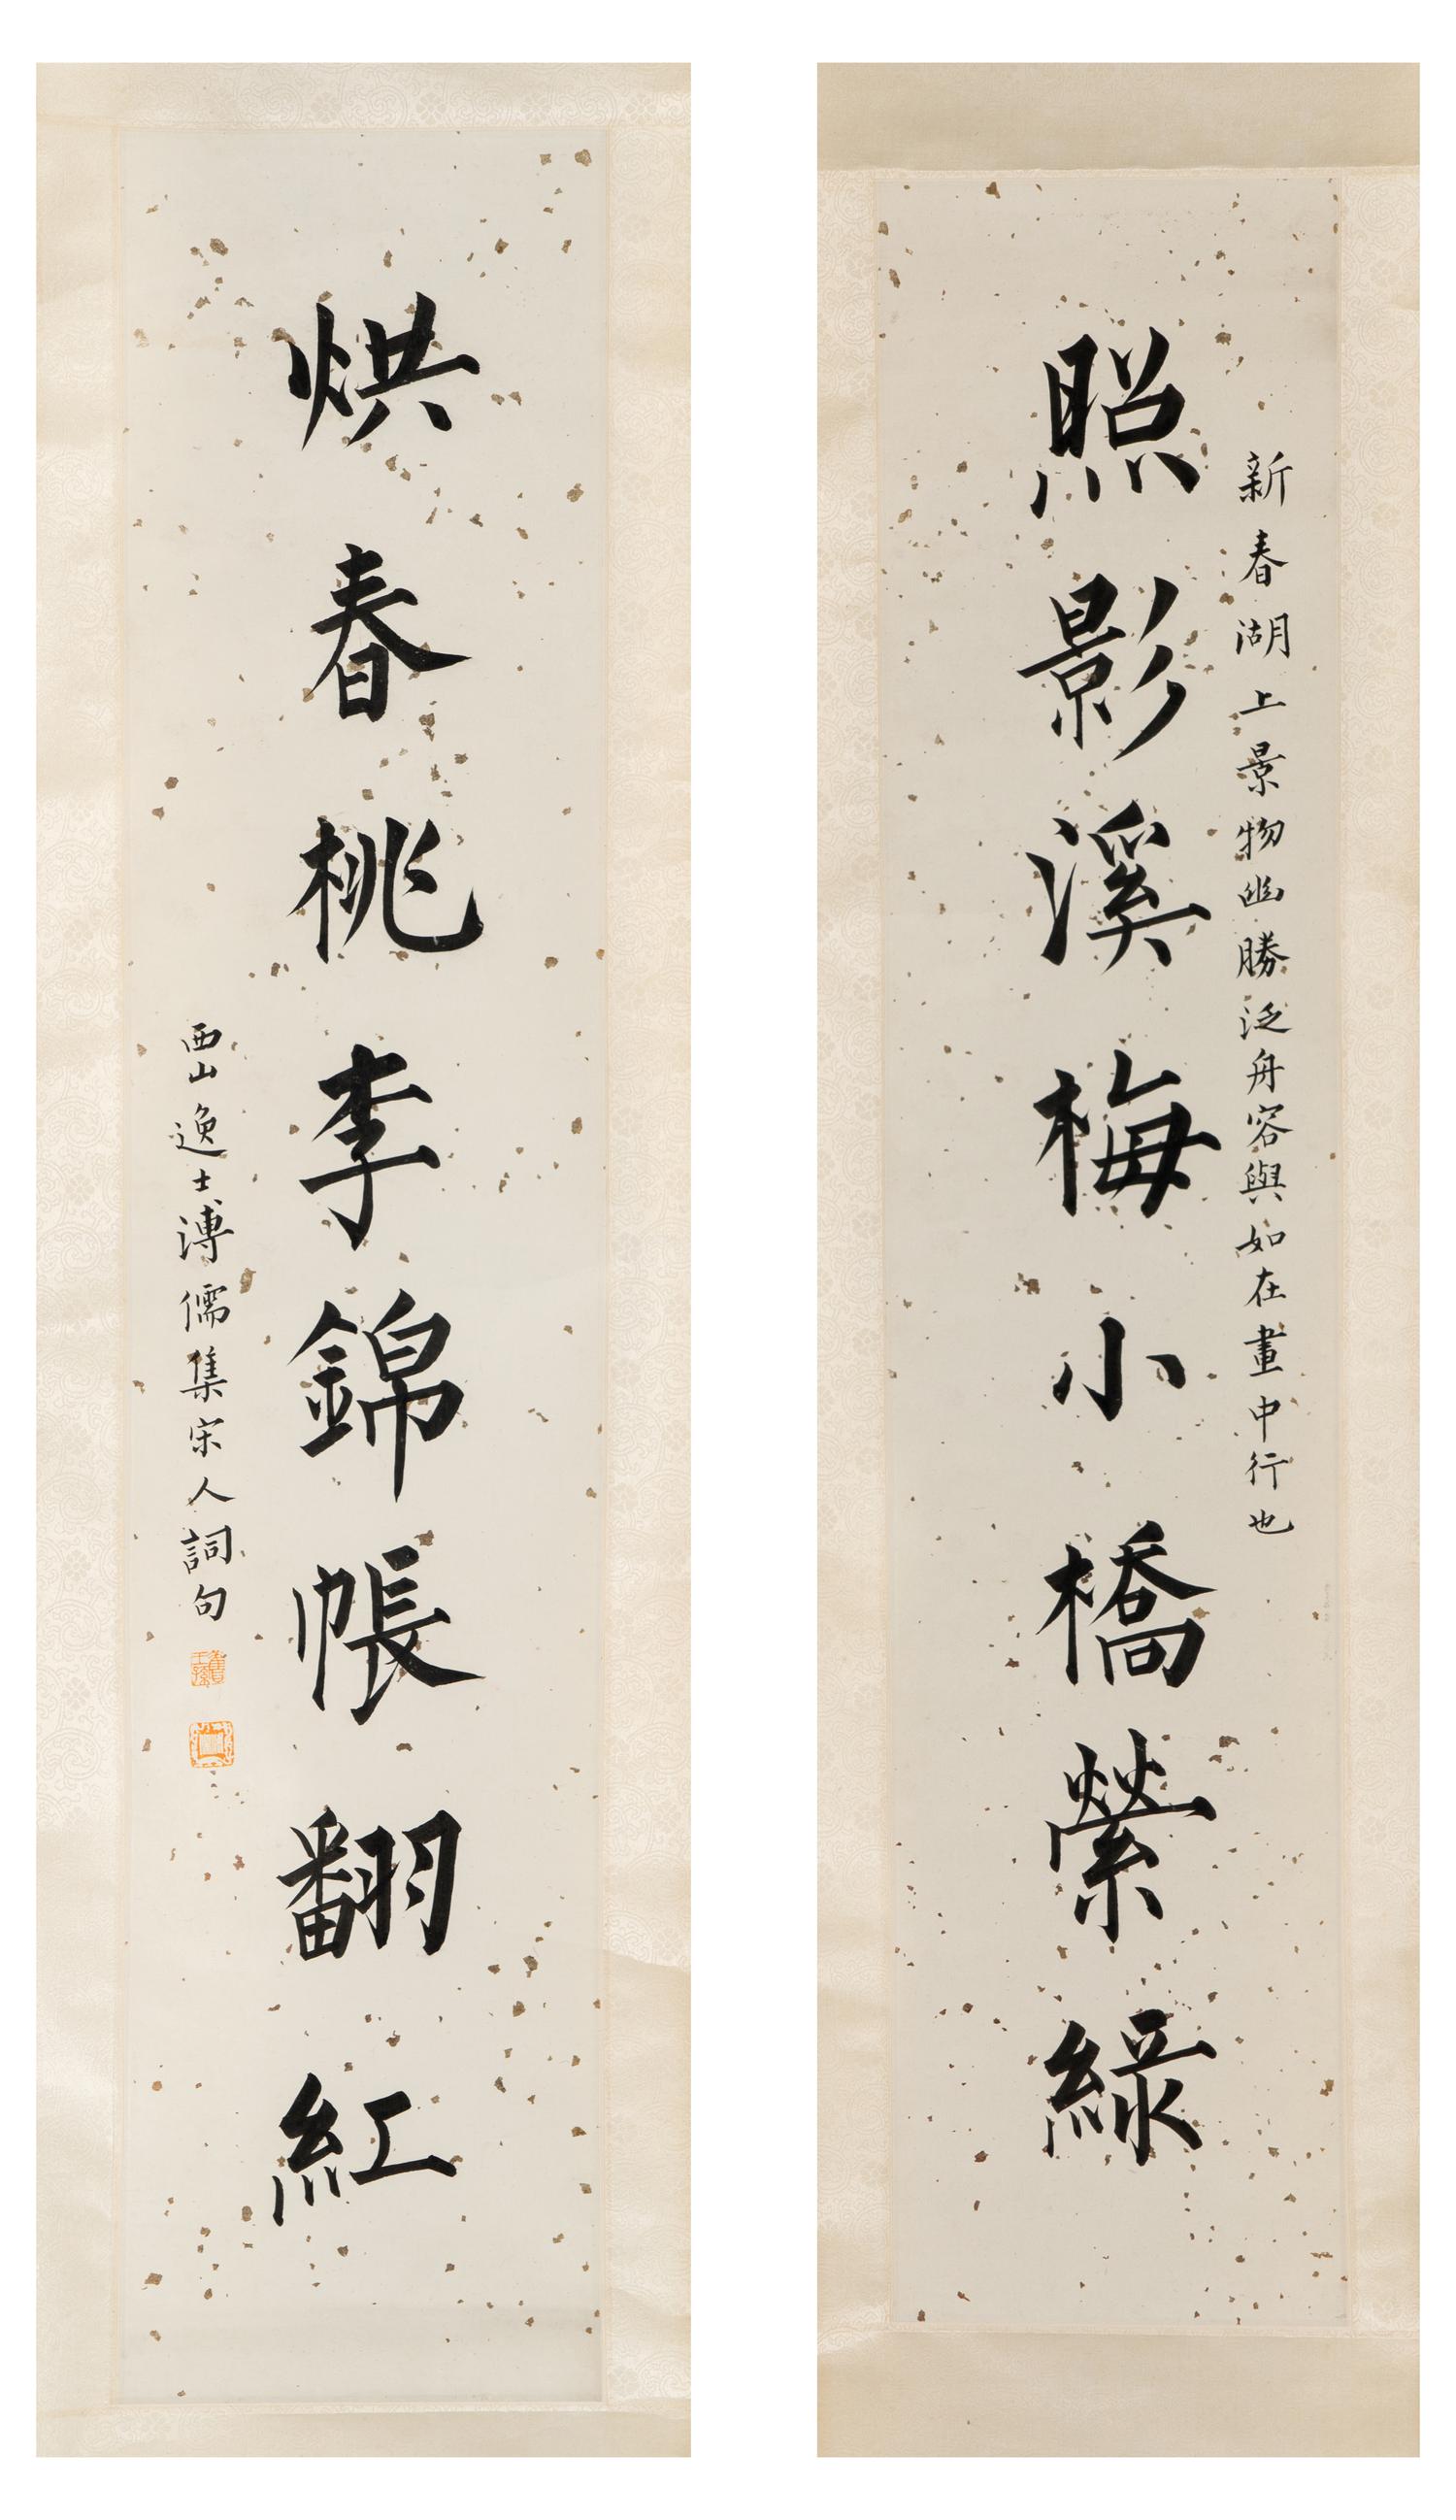 新春湖上景物幽勝泛舟容與如在畫中行也
照影溪梅小橋縈綠
烘春桃李錦帳翻紅
西山逸士溥儒集宋人詞句
舊王孫